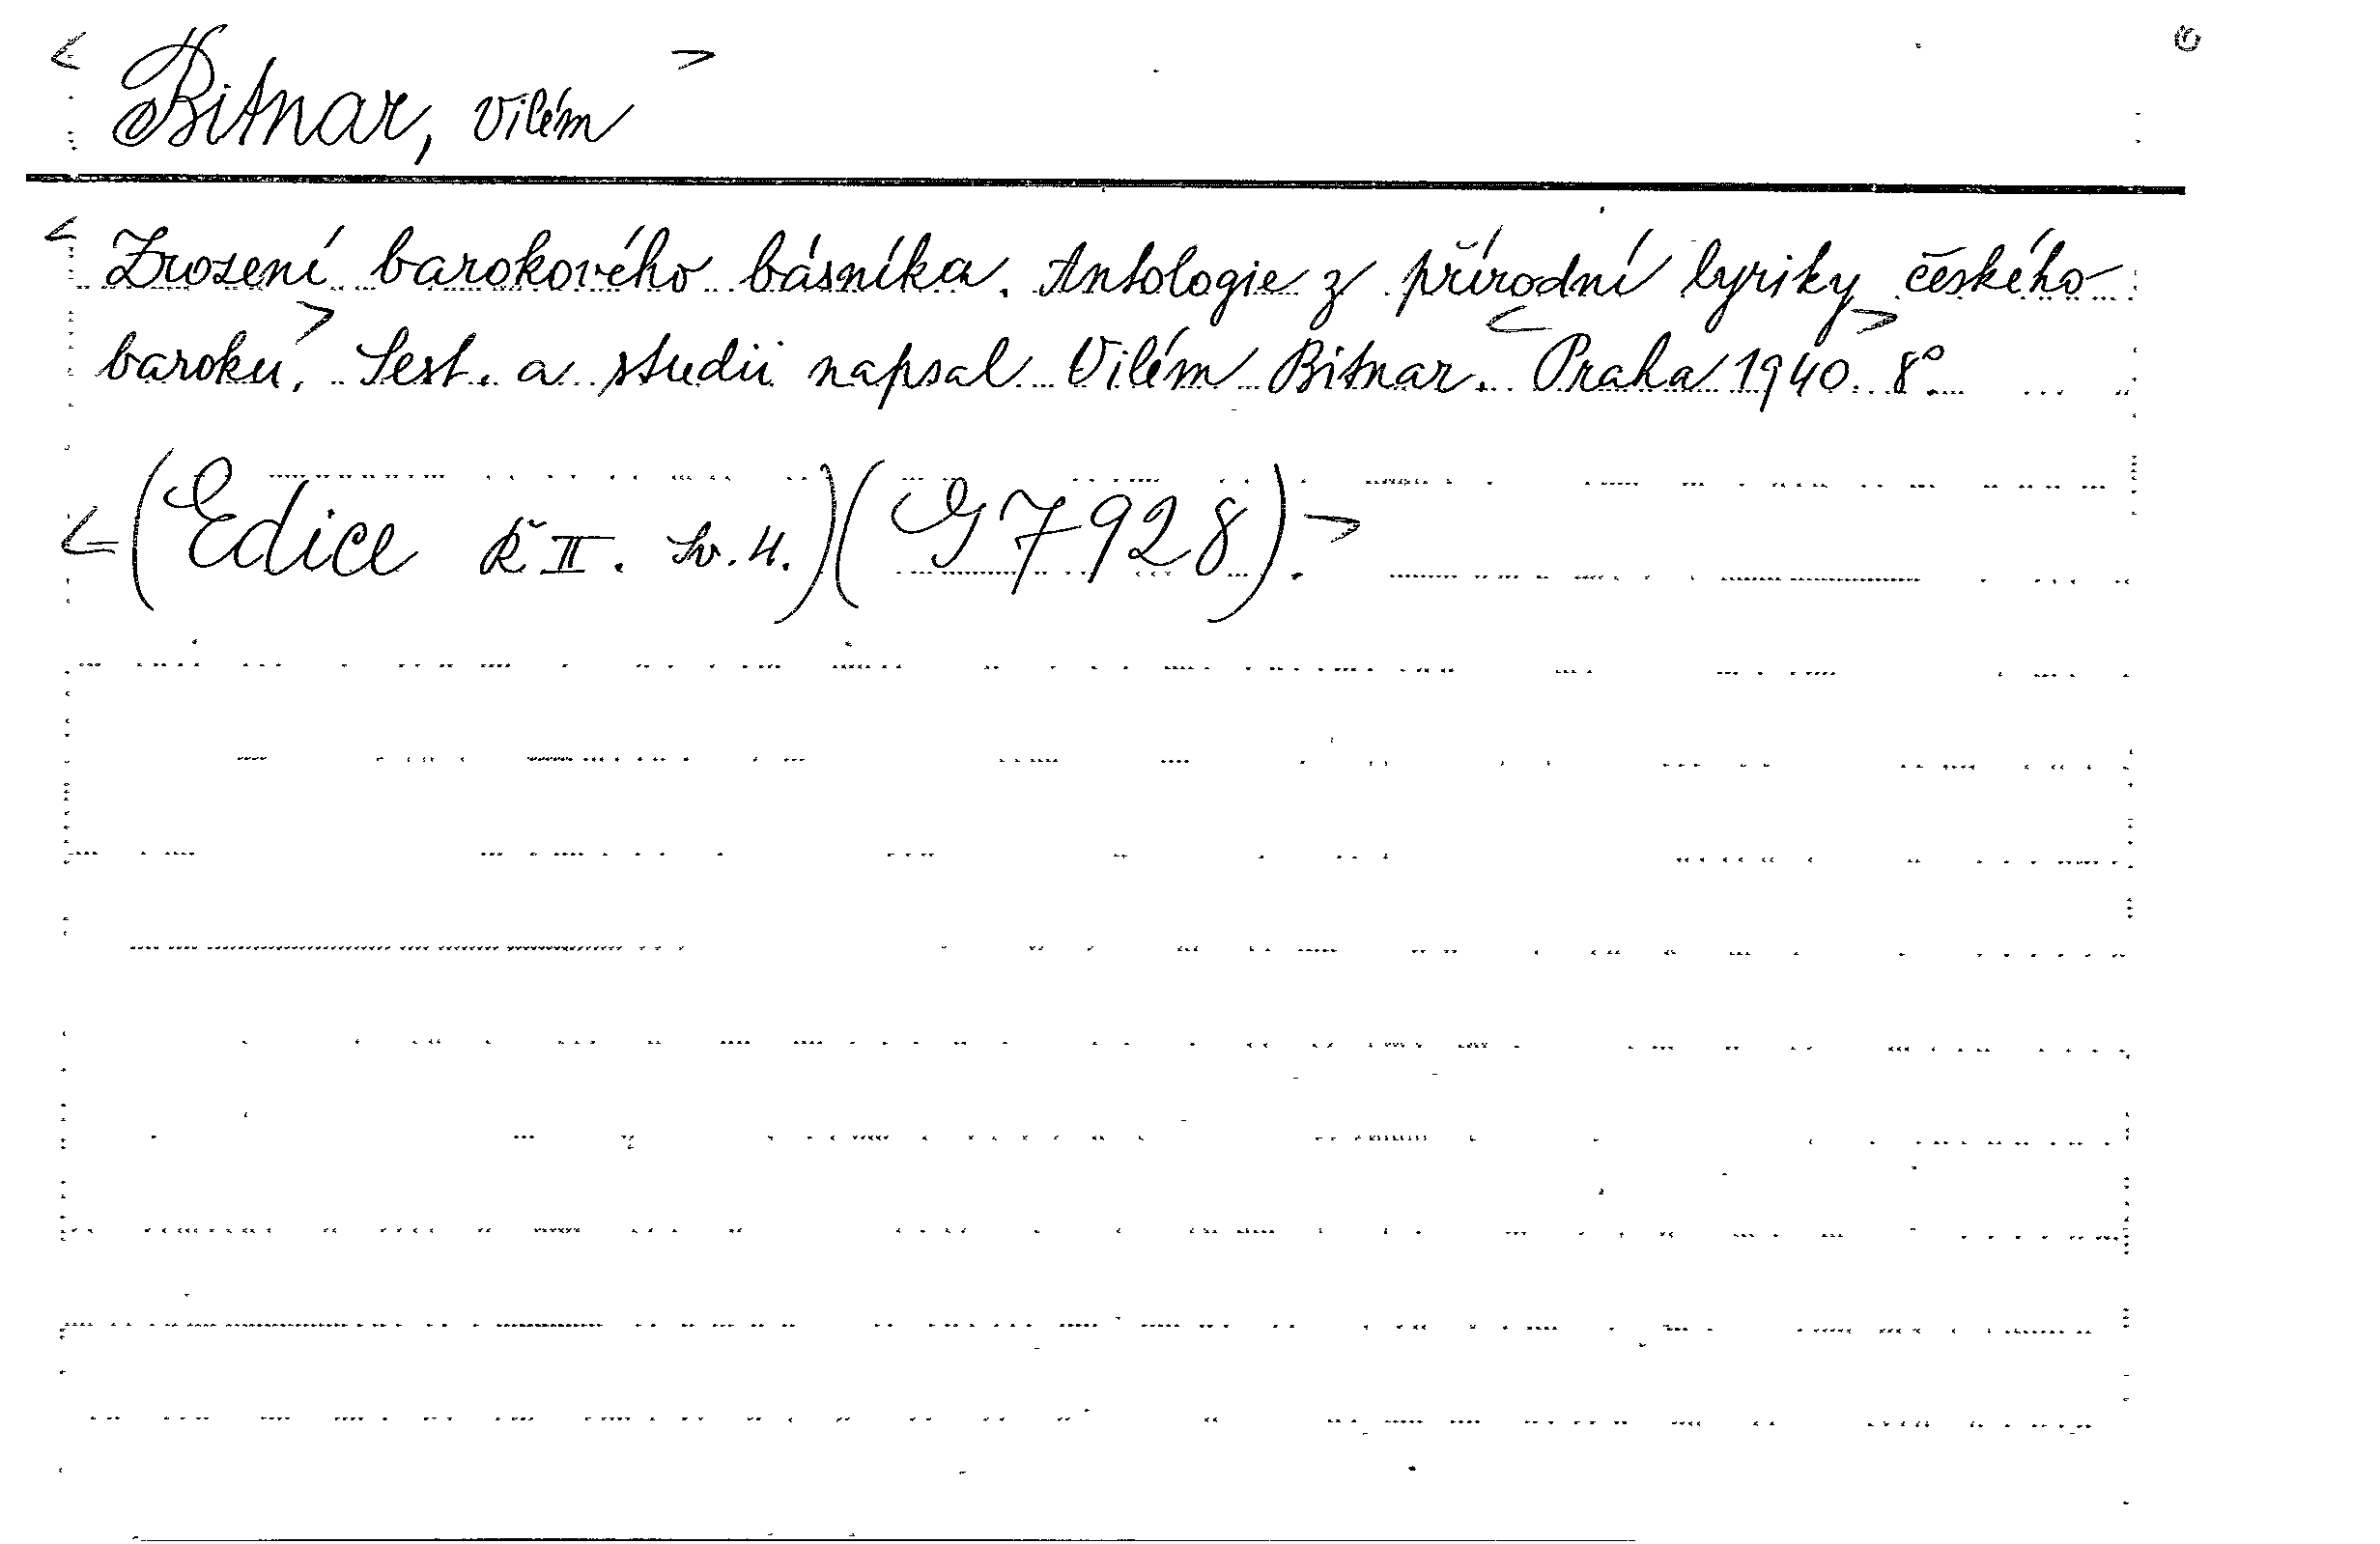 < Bitnar, Vilém >
< Zrození barokového básníka. Antologie z přírodní lyriky českého
baroku. > Sest. a studii napsal Vilém Bitnar. < Praha 1940. > 8°.
< (Edice Ř II. Sv. 4.) (G 7928). >